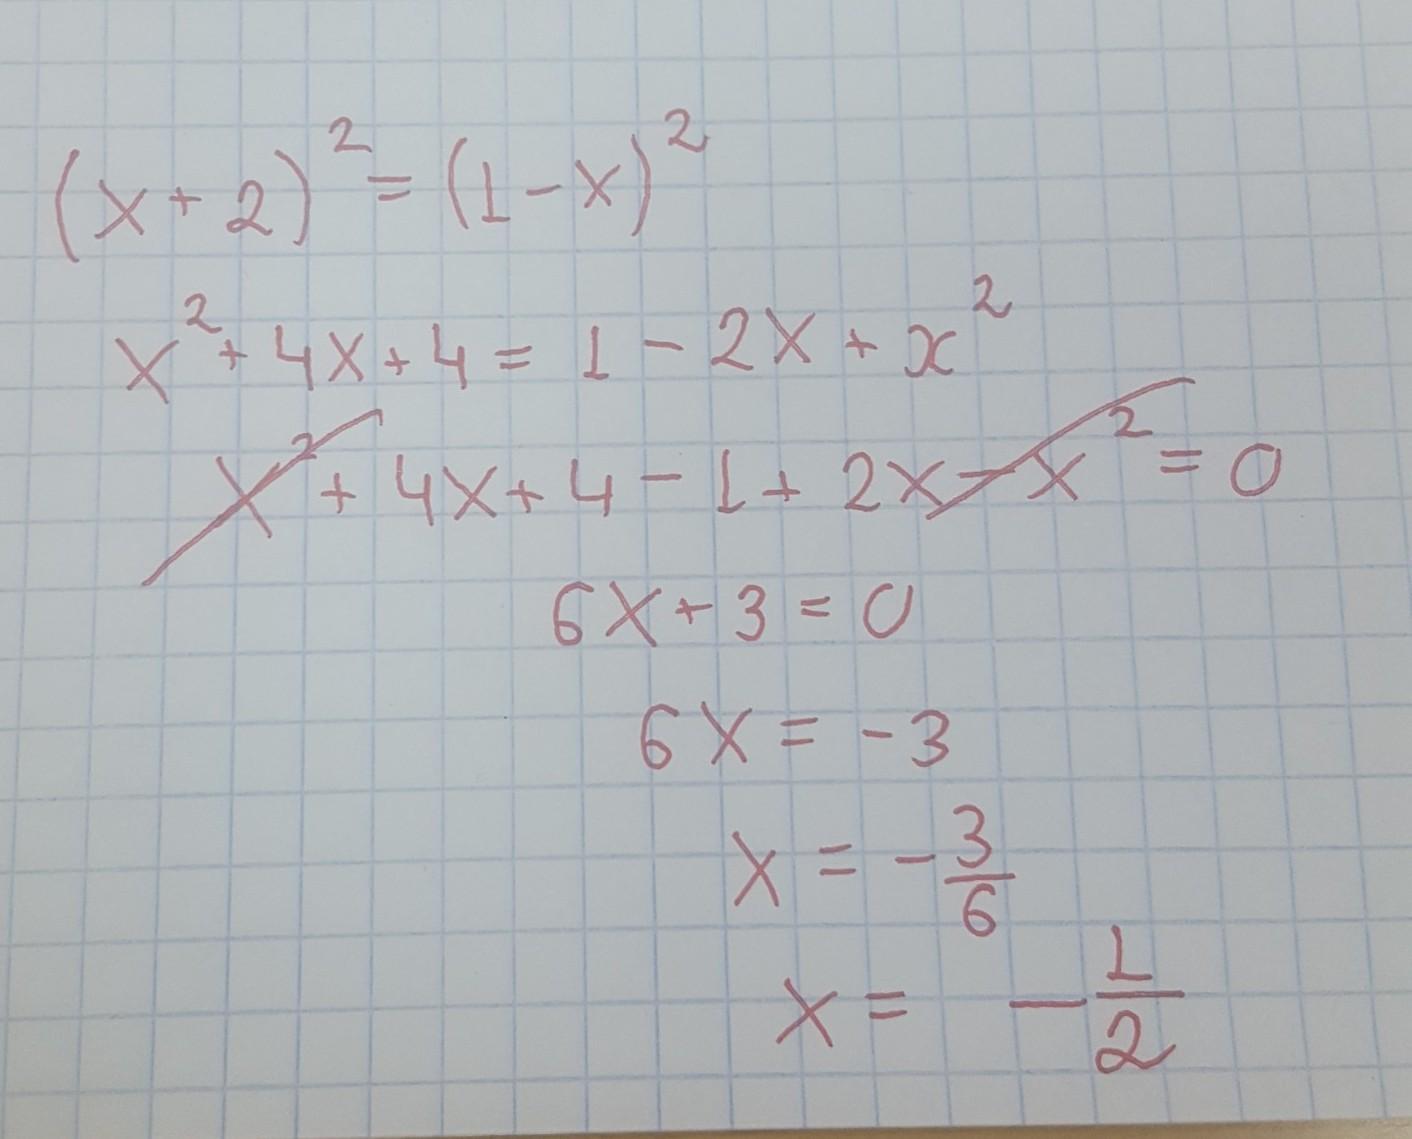 (x+2)² = (1-x)²
x² + 4x + 4 = 1 - 2x + x²
x² + 4x + 4 - 1 + 2x - x² = 0
6x + 3 = 0
6x = -3
x = -3/6
x = -1/2